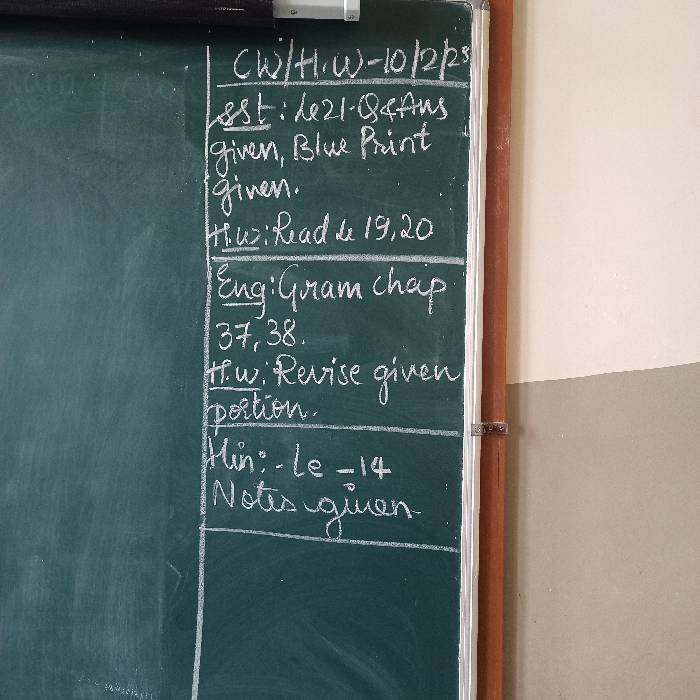 CW/H.W-10/2/25
SSt: Le21-Q&Ans
given, Blue Print
given.
H.w: Read Le 19,20
Eng: Gram chap
37, 38.
H.w: Revise given
portion.
Hin:- Le -14
Notes given